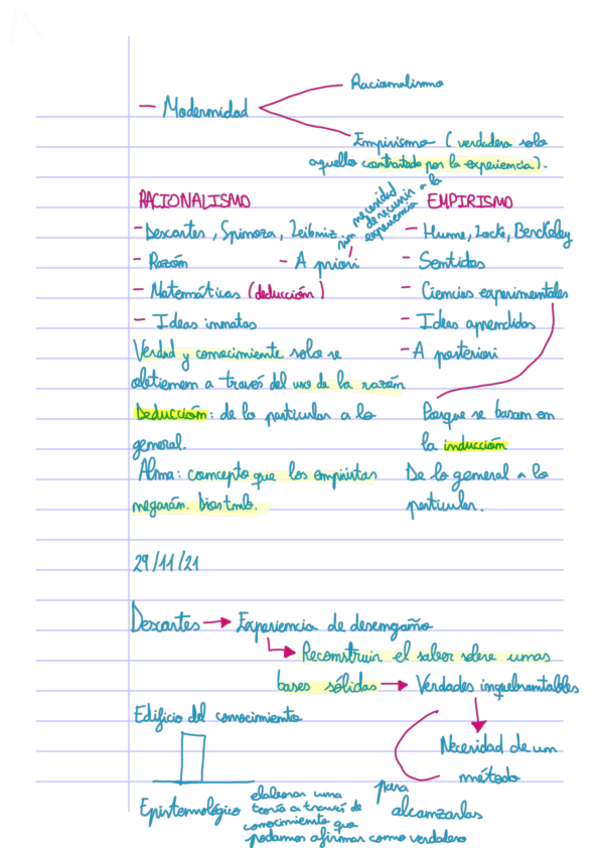 Racionalismo
- Modernidad
Empirismo (verdadero solo
aquello contrastado por la experiencia).
RACIONALISMO
sin necesidad de recurrir a la experiencia
EMPIRISMO
- Descartes, Spinoza, Leibniz
- Hume, Locke, Berckeley
- Razón
- A priori
- Sentidos
- Matemáticas (deducción)
- Ciencias experimentales
- Ideas innatas
- Ideas aprendidas
Verdad y conocimiento solo se
- A posteriori
obtienen a través del uso de la razón
Deducción: de lo particular a lo
Porque se basan en
general.
la inducción
Alma: concepto que los empiristas
De lo general a lo
negarán. Dios tmb.
particular.
29/11/21
Descartes → Experiencia de desengaño
Reconstruir el saber sobre unas
bases sólidas → Verdades inquebrantables
Edificio del conocimiento
Necesidad de un
método
para
alcanzarlas
Epistemológico
elaborar una
teoría a través de
conocimiento que
podamos afirmar como verdadero